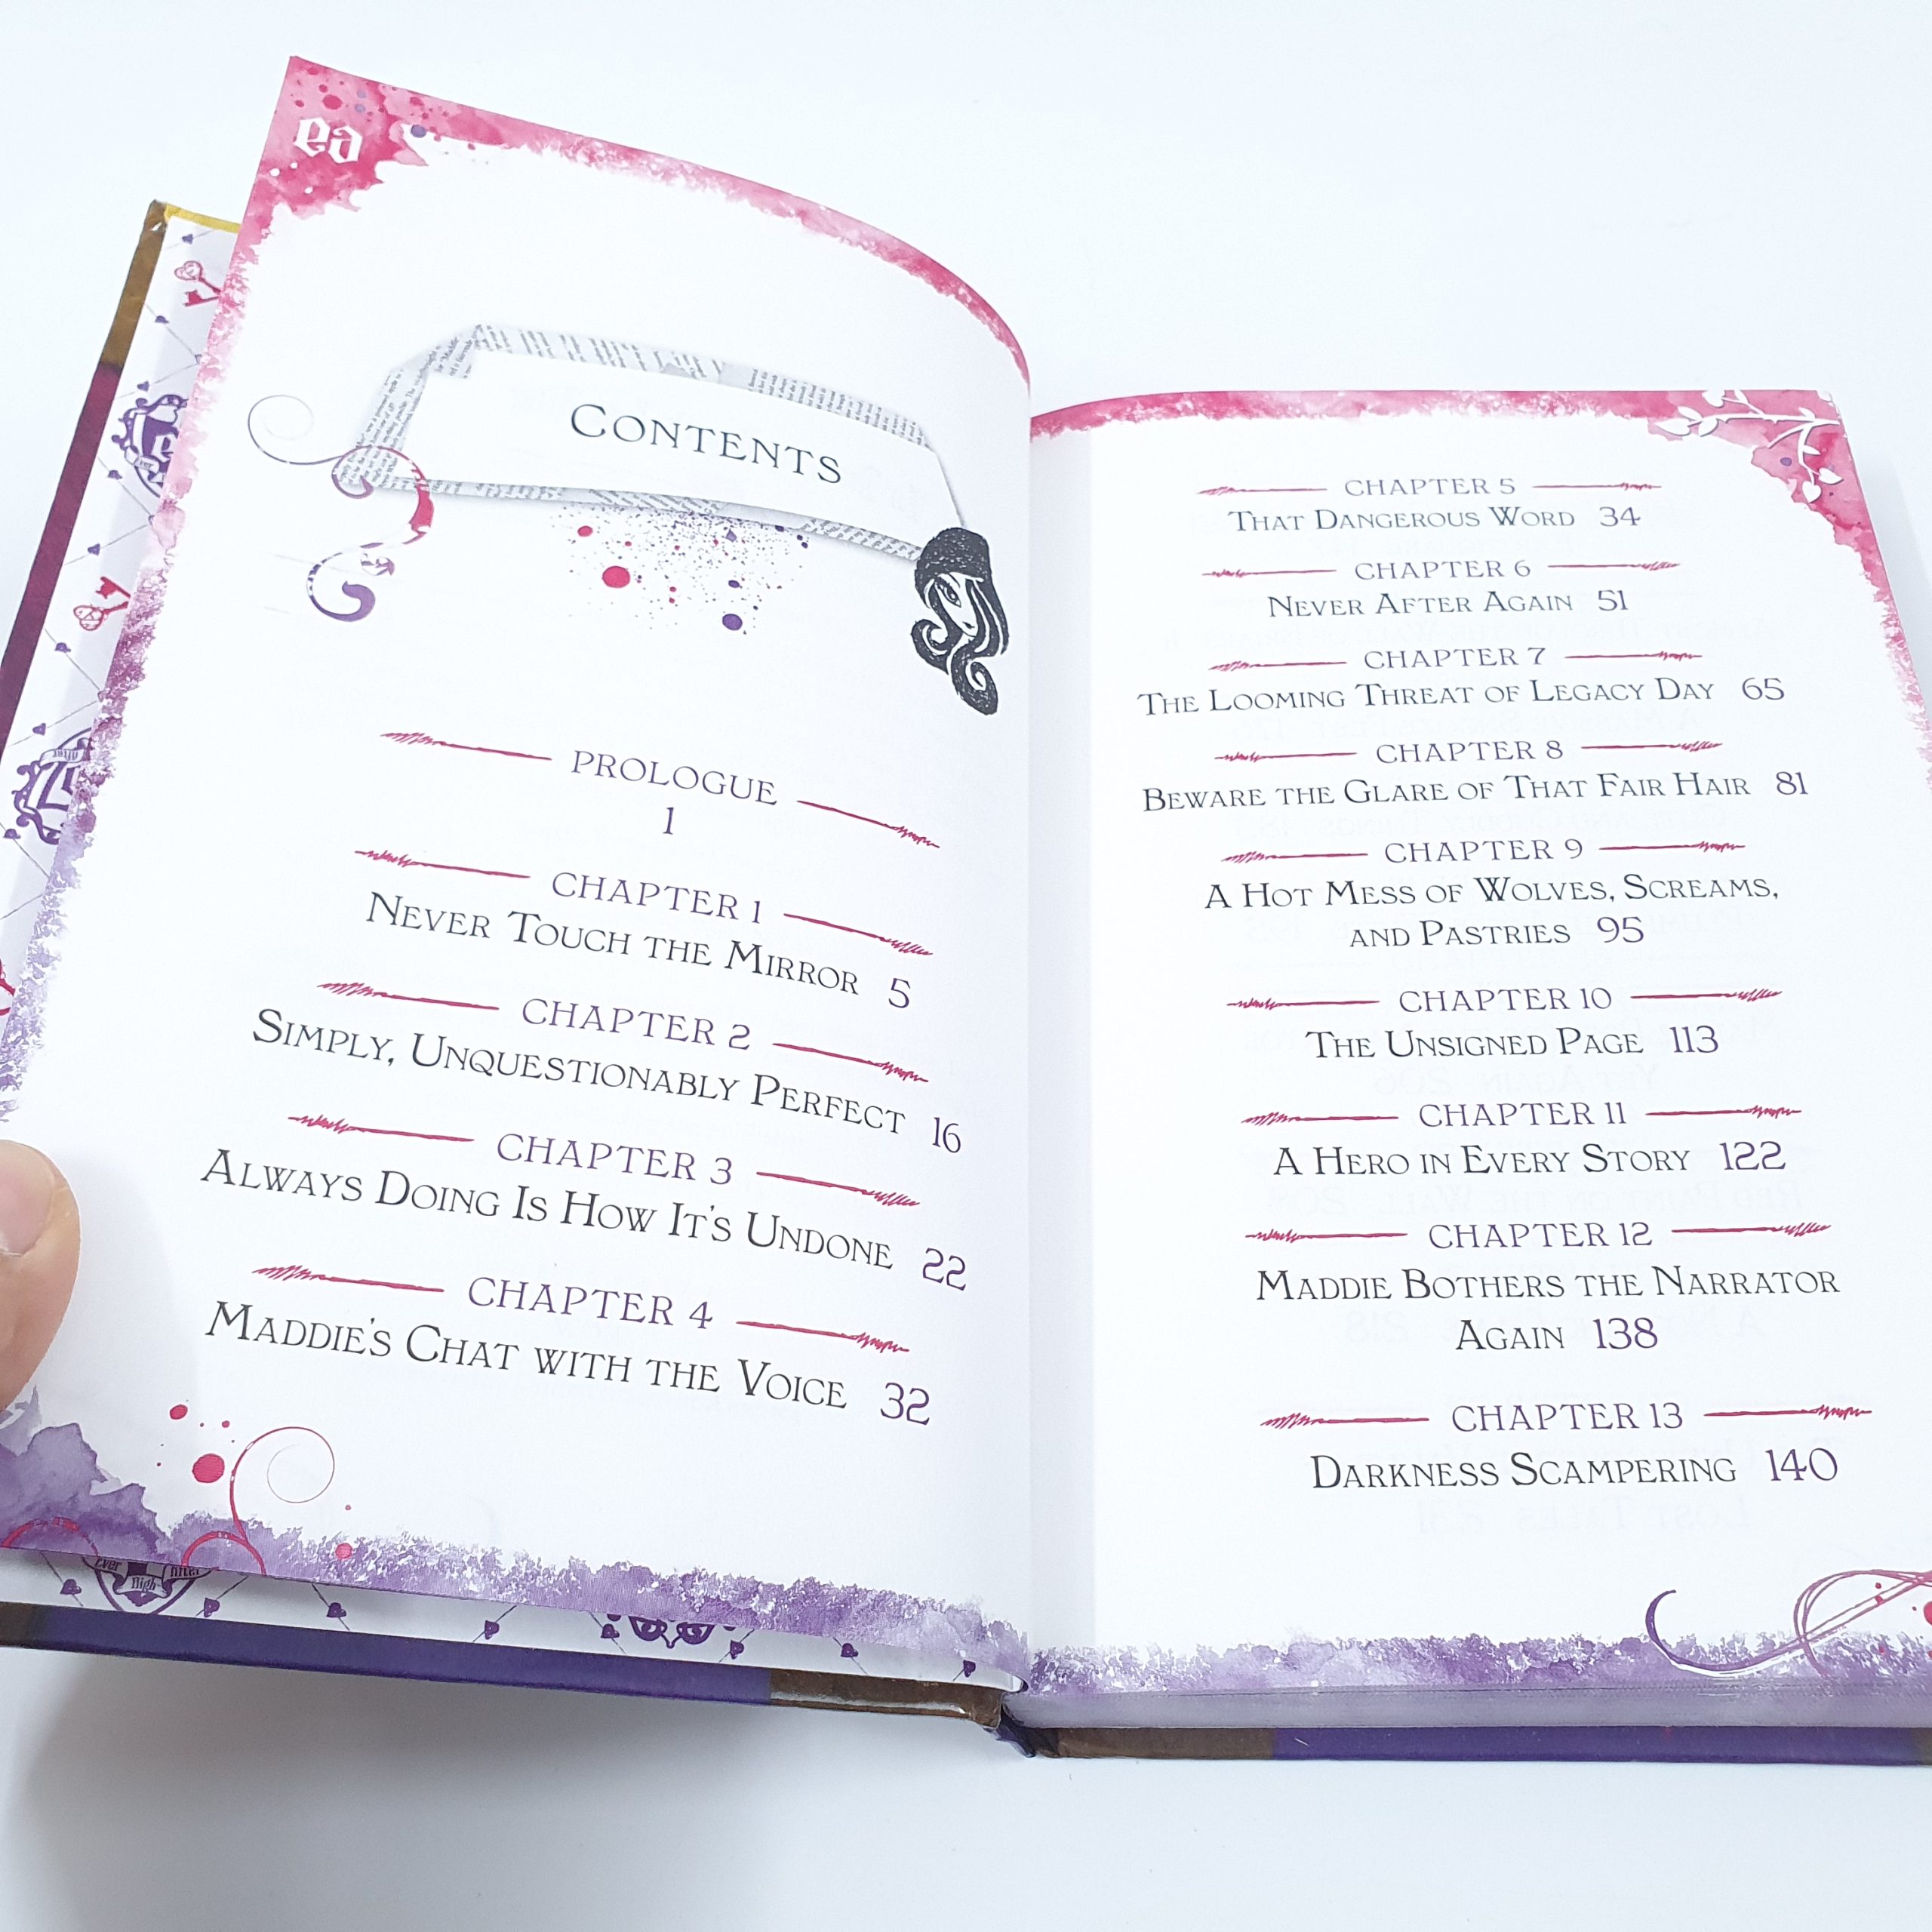 Contents
Prologue
1
Chapter 1
Never Touch the Mirror 5
Chapter 2
Simply, Unquestionably Perfect 16
Chapter 3
Always Doing Is How It's Undone 22
Chapter 4
Maddie's Chat with the Voice 32
Chapter 5
That Dangerous Word 34
Chapter 6
Never After Again 51
Chapter 7
The Looming Threat of Legacy Day 65
Chapter 8
Beware the Glare of That Fair Hair 81
Chapter 9
A Hot Mess of Wolves, Screams,
and Pastries 95
Chapter 10
The Unsigned Page 113
Chapter 11
A Hero in Every Story 122
Chapter 12
Maddie Bothers the Narrator
Again 138
Chapter 13
Darkness Scampering 140
Ever
High
After